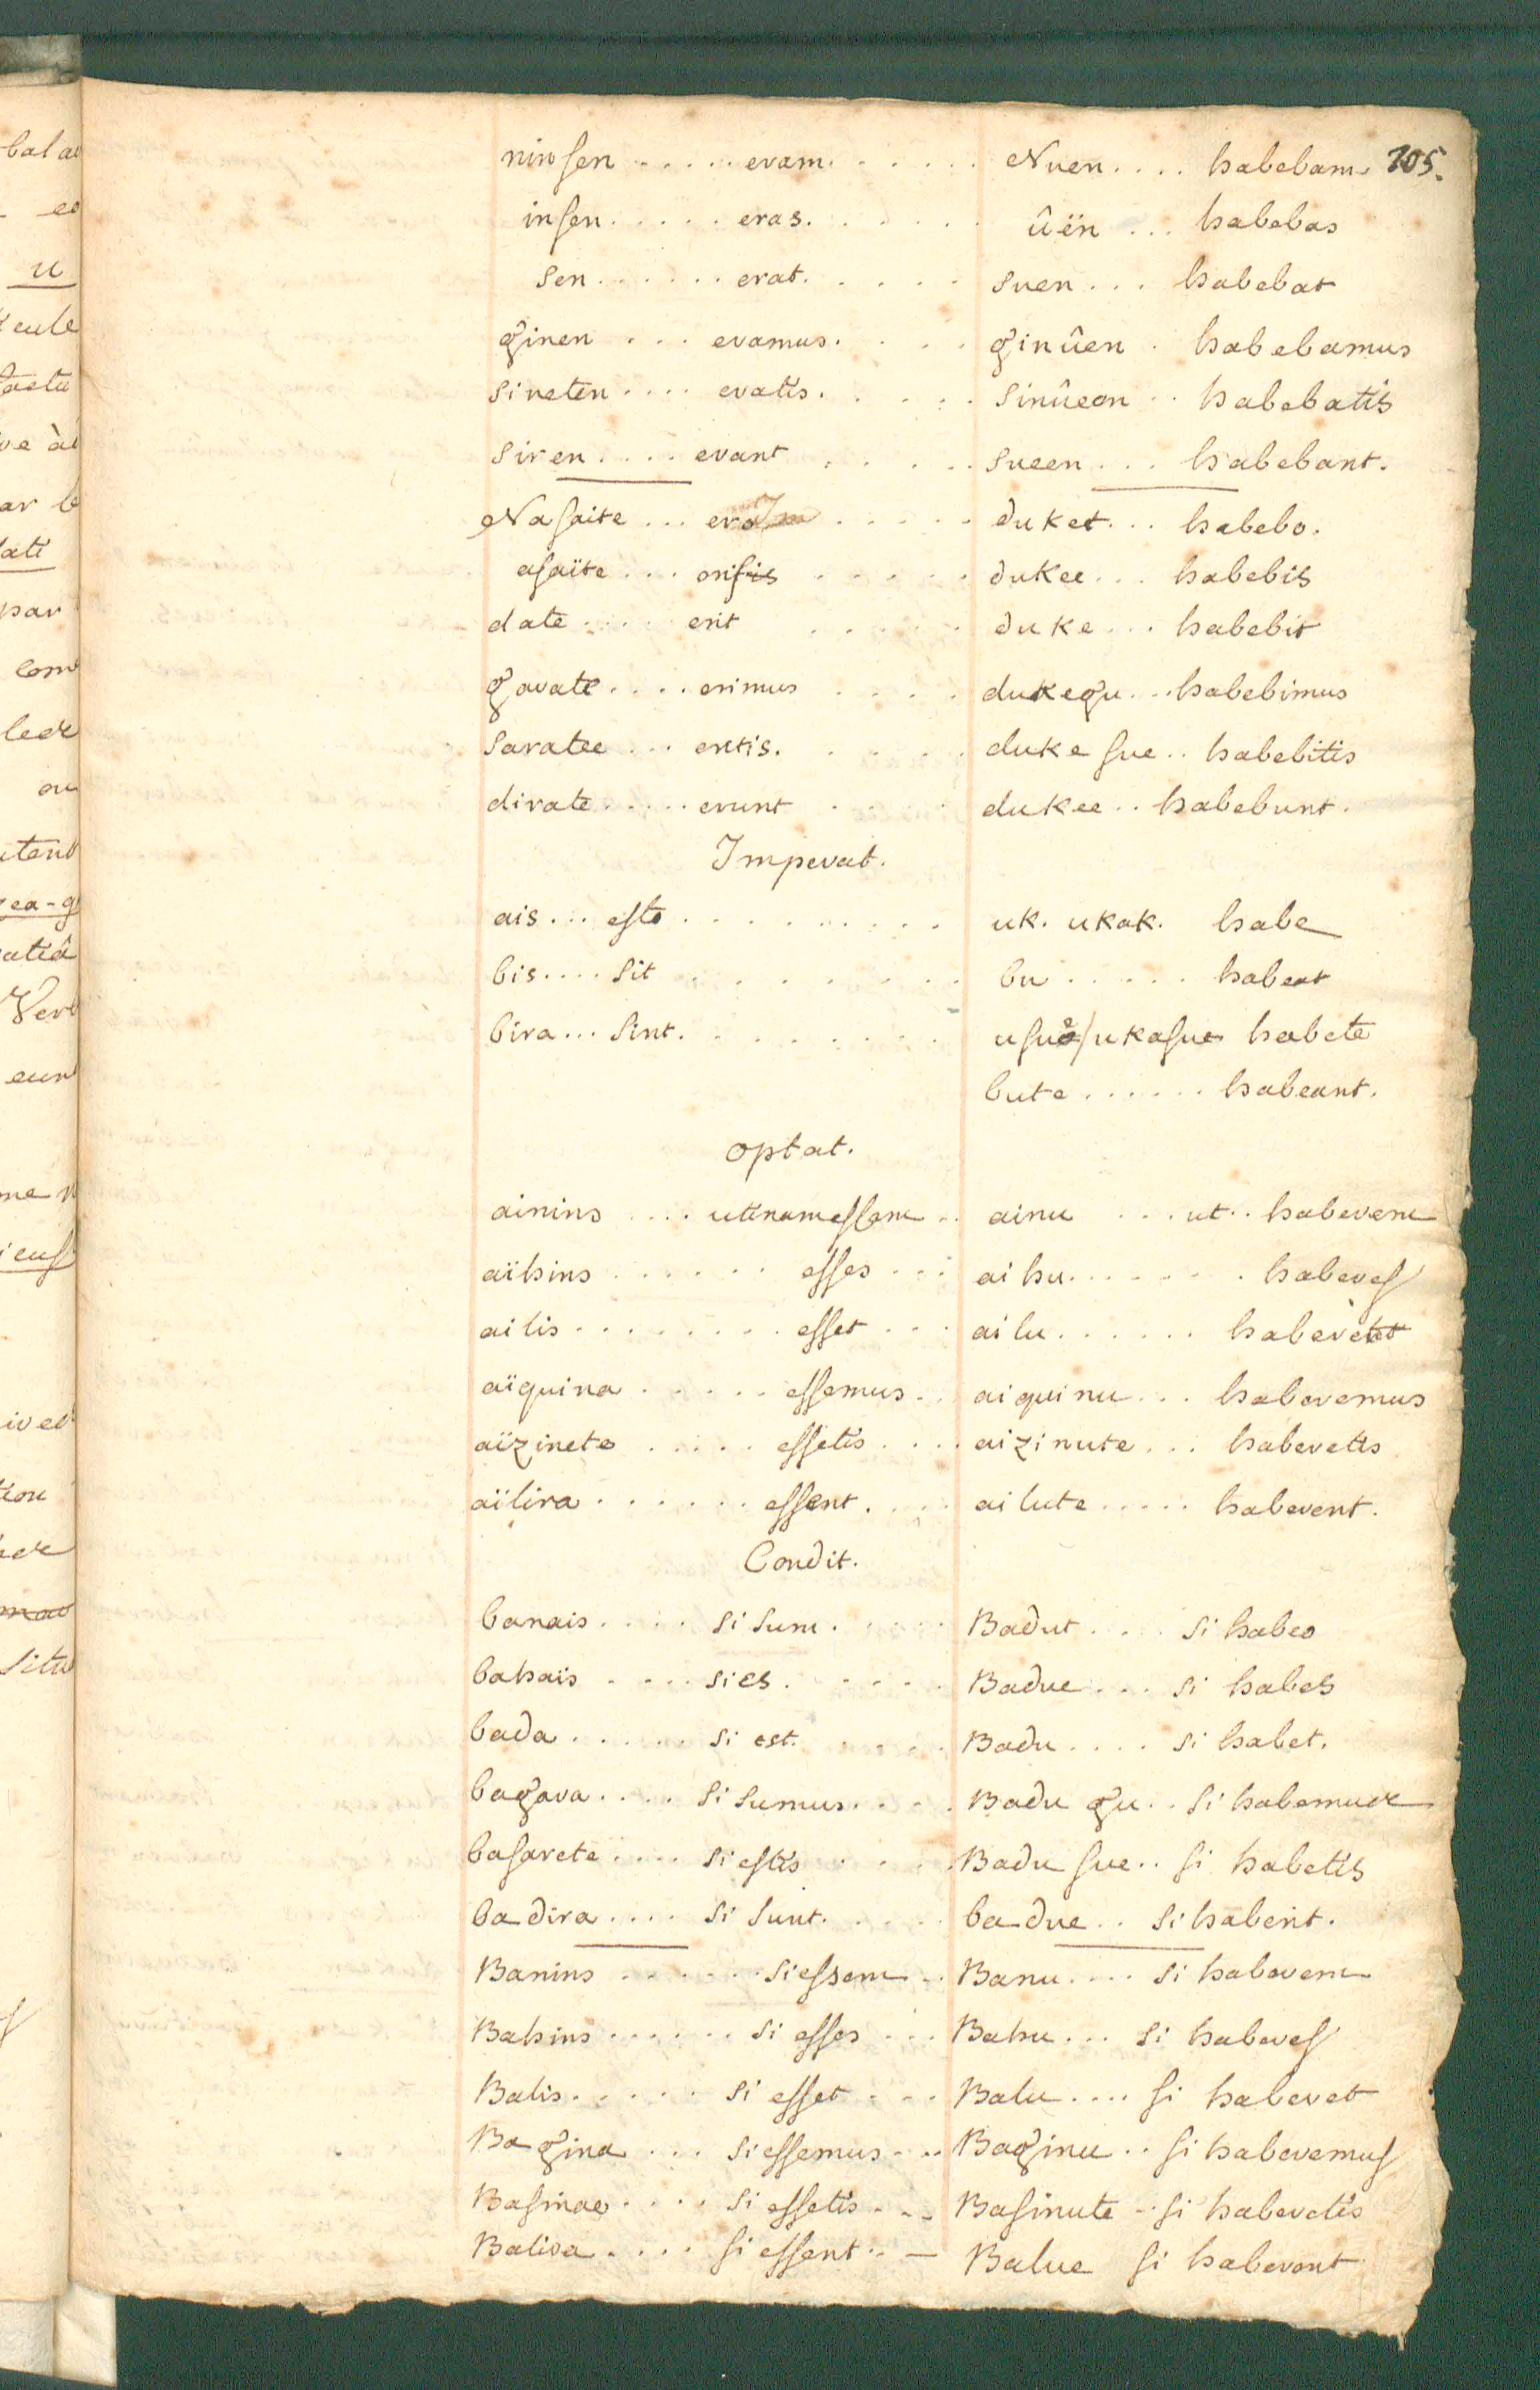 ninſen ..... eram. ..... Nuen .... habebam 105.
inſen ..... eras. ..... ûën ... habebas
sen ...... erat. ..... suen ... habebat
ginen ... eramus. .... ginûen . habebamus
sineten .... eratis. ..... sinûeon .. habebatis
siren .... erant ..... sueen ... habebant.
Naſaite ... ero ..... duket ... habebo.
aſaïte ... eris ..... dukee ... habebis
date .... erit ..... duke ... habebit
gavate .... erimus .... dukegu ... habebimus
saratee ... eritis. .... dukeſue .. habebitis
dirate ..... erunt .... dukee .. habebunt.
Imperat.
ais ... eſto ......... uk. ukak. habe
bis .... sit ........ bu ..... habeat
bira ... sint. ........ uſue/ukaſue habete
bute ...... habeant.
optat.
ainins .... utinam eſſem .. ainu ... ut .. haberem
aïhins ...... eſſes ... aihu ....... habereſ
ailis ........ eſſet ... ailu ...... haberet
aïquina ..... eſſemus .. aiquinu ... haberemus
aïzinete ..... eſſetis .... aizinute ... haberetis
aïlira ...... eſſent. ... ailute ..... haberent.
Condit.
banais .... si sum. .... Badut .... si habeo
bahaïs .... si es. .... Badue ... si habes
bada ..... si est. .... Badu .... si habet.
bagava .... si sumus. ... Badu gu .. si habemus
baſarete .... si eſtis .... Badu ſue .. ſi habetis
badira .... si sunt. .... badue .. si habent.
Banins ...... si eſsem .. Banu .... si haberem
Bahins ...... si eſſes ... Bahu ... si habereſ
Balis ..... si eſſet ... Balu .... ſi haberet
Bagina ... si eſſemus ... Baginu .. ſi haberemuſ
Baſinae .... si eſſetis ... Baſinute .. ſi haberetis
Balira .... ſi eſſent .. — Balue ſi haberent